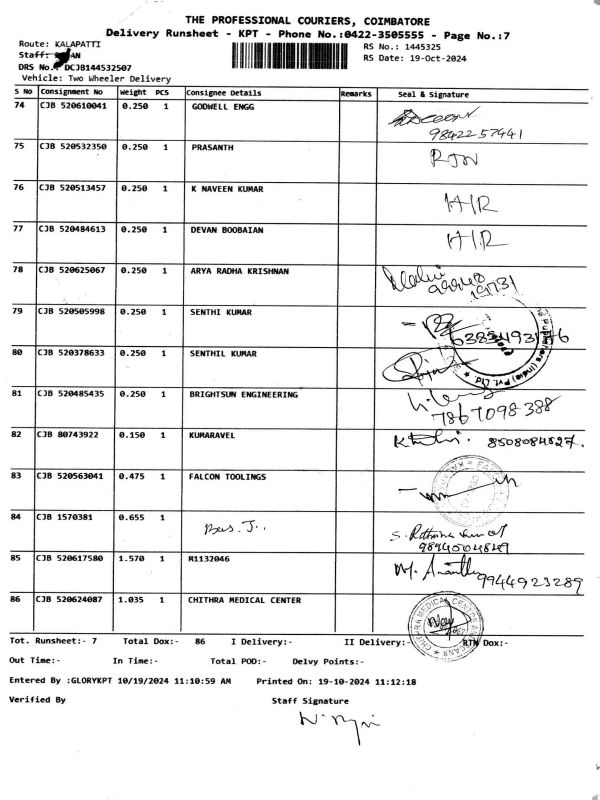 THE PROFESSIONAL COURIERS, COIMBATORE
Delivery Runsheet - KPT - Phone No.:0422-3505555 - Page No.:7
Route: KALAPATTI
RS No.: 1445325
Staff: AN
RS Date: 19-Oct-2024
DRS No.: DCJB144532507
Vehicle: Two Wheeler Delivery
S No Consignment No Weight PCS Consignee Details Remarks Seal & Signature
74 CJB 520610041 0.250 1 GODWELL ENGG
9842257441
75 CJB 520532350 0.250 1 PRASANTH RJN
76 CJB 520513457 0.250 1 K NAVEEN KUMAR H/R
77 CJB 520484613 0.250 1 DEVAN BOOBAIAN H/R
78 CJB 520625067 0.250 1 ARYA RADHA KRISHNAN
79 CJB 520505998 0.250 1 SENTHI KUMAR
80 CJB 520378633 0.250 1 SENTHIL KUMAR
(India) Pvt. Ltd
81 CJB 520485435 0.250 1 BRIGHTSUN ENGINEERING
7867098388
82 CJB 80743922 0.150 1 KUMARAVEL 8508084827.
83 CJB 520563041 0.475 1 FALCON TOOLINGS
84 CJB 1570381 0.655 1
85 CJB 520617580 1.570 1 M1132046 9944923289
86 CJB 520624087 1.035 1 CHITHRA MEDICAL CENTER
Tot. Runsheet:- 7 Total Dox:- 86 I Delivery:- II Delivery:- RTN Dox:-
Out Time:- In Time:- Total POD:- Delvy Points:-
Entered By :GLORYKPT 10/19/2024 11:10:59 AM Printed On: 19-10-2024 11:12:18
Verified By Staff Signature